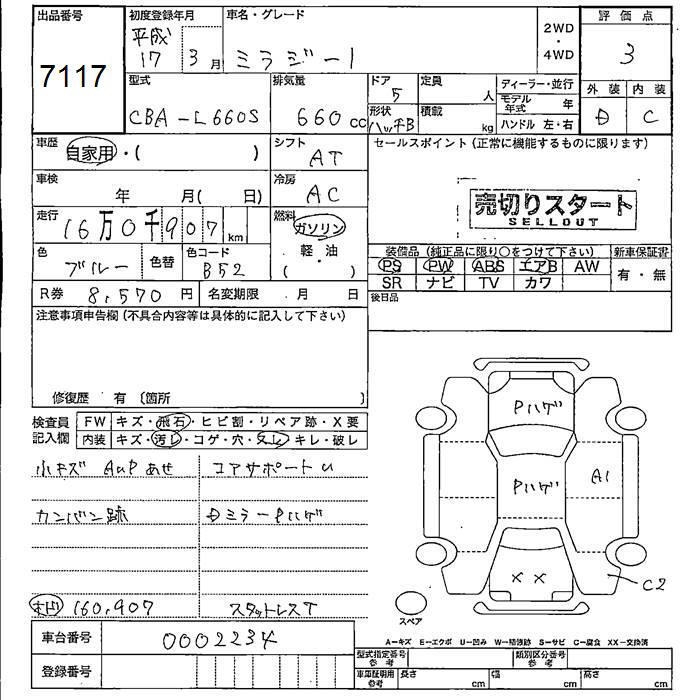 出品番号
7117
初度登録年月
平成
17 3 月
車名・グレード
ミラジーノ
2WD
・
4WD
評価点
3
外装 内装
D C
型式
CBA-L660S
排気量
660 cc
ドア
5
形状
ハッチB
定員
人
積載
kg
ディーラー・並行
モデル年式 年
ハンドル 左・右
車歴
自家用・( )
シフト
AT
セールスポイント (正常に機能するものに限ります)
車検
年 月( 日)
冷房
AC
売切りスタート
SELLOUT
走行
16万0千907 km
燃料
ガソリン
軽・油
( )
色
ブルー
色替
色コード
B52
装備品 (純正品に限り○をつけて下さい)
PS PW ABS エアB AW
SR ナビ TV カワ
新車保証書
有・無
R券 8,570 円
名変期限 月 日
後日品
注意事項申告欄 (不具合内容等は具体的に記入して下さい)
修復歴 有 (箇所 )
検査員
記入欄
FW キズ・飛石・ヒビ割・リペア跡・X要
内装 キズ・汚レ・コゲ・穴・スレ・キレ・破レ
小キズ AUP あせ
コアサポートU
カンバン跡
Dミラー Pハゲ
160,907
スタットレスT
Pハゲ
Pハゲ
A1
××
C2
スペア
A―キズ E―エクボ U―凹み W―補修跡 S―サビ C―腐食 XX―交換済
車台番号 0002234
登録番号
型式指定番号
参考
類別区分番号
参考
車庫証明用
参考
長さ cm
幅 cm
高さ cm